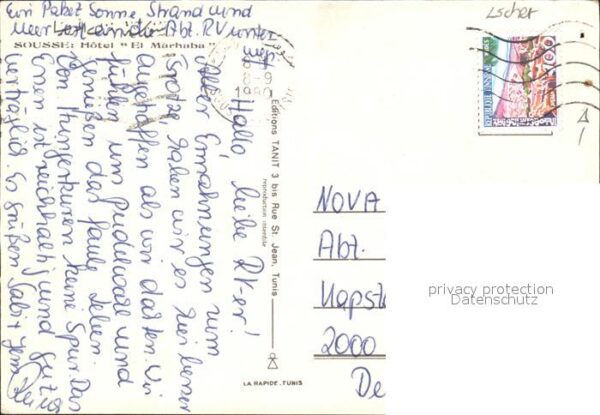 Ein Paket Sonne, Strand und
Meer
Abt. RV unter-
wegs
SOUSSE: Hôtel "El Marhaba"
8-9
1980
Hallo, liebe RV-er!
Aller Ermahnungen zum
Trotze haben wir es hier besser
angetroffen als wir dachten. Wir
fühlen uns pudelwohl und
genießen das faule Leben.
Von Hungerkuren keine Spur. Das
Essen ist reichhaltig und gut u.
verträglich. Es grüßen Gabi +
Editions TANIT 3 bis Rue St. Jean, Tunis
reproduction interdite
LA RAPIDE - TUNIS
NOVA
Abt.
Kapst
2000
De
privacy protection
Datenschutz